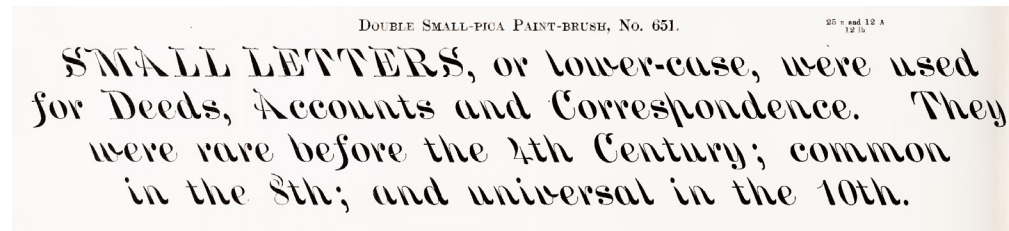 DOUBLE SMALL-PICA PAINT-BRUSH, NO. 651.
25 a and 12 A
12 lb
SMALL LETTERS, or lower-case, were used
for Deeds, Accounts and Correspondence. They
were rare before the 4th Century; common
in the 8th; and universal in the 10th.